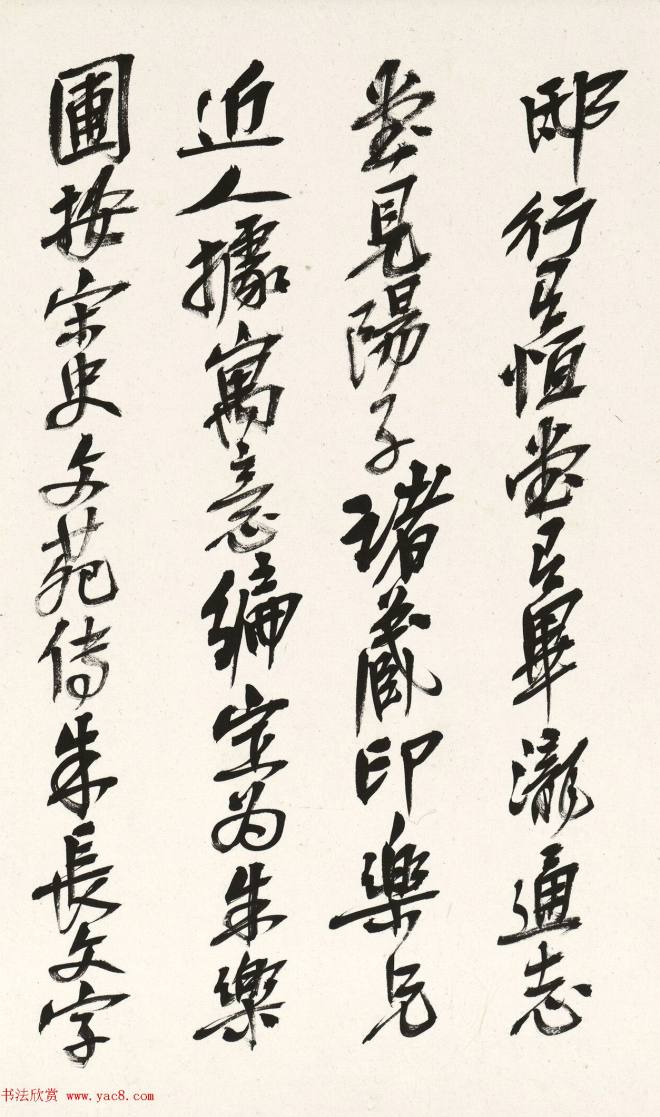 邸行有恒堂有畢瀧通志
堂見陽子諸藏印樂兄
近人據寓意編定為朱樂
圃按宋史文苑傳朱長文字
书法欣赏 www.yac8.com